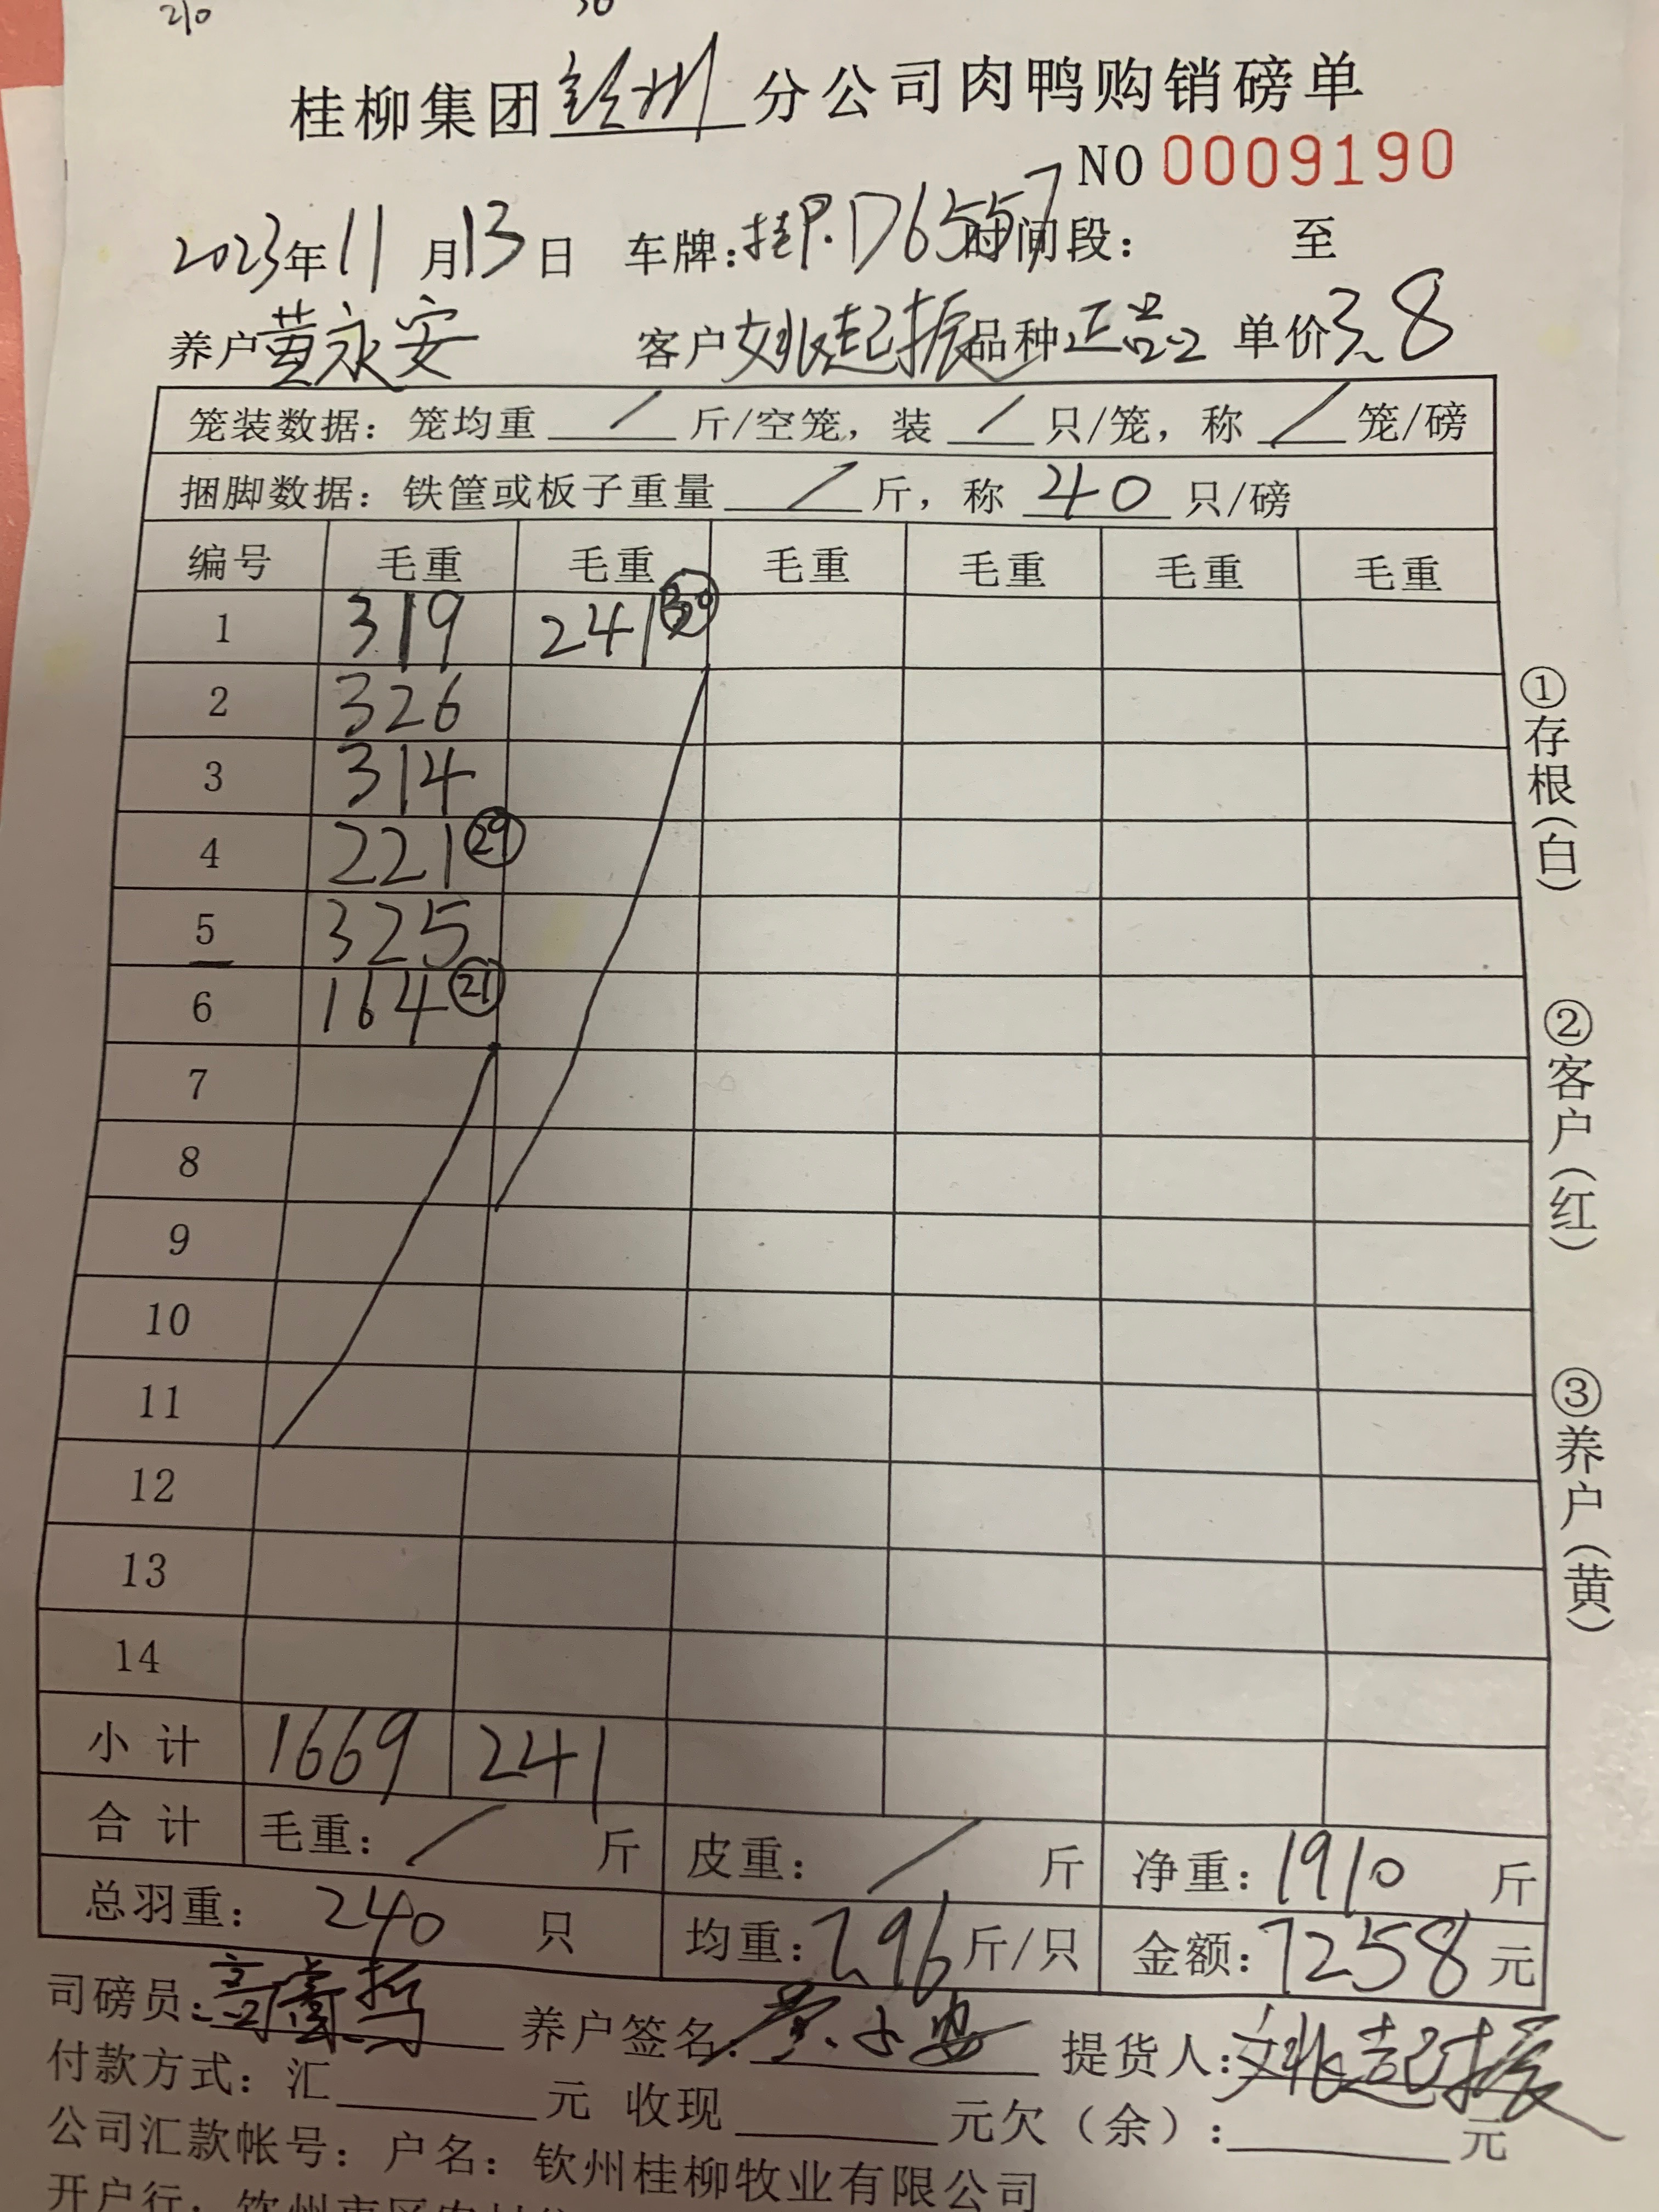 210 30
桂柳集团钦州分公司肉鸭购销磅单
NO 0009190
2023年11月13日 车牌:桂P.D6557 时间段: 至
养户 黄永安 客户 姚起振 品种 正品 单价 3.8
笼装数据: 笼均重 / 斤/空笼, 装 / 只/笼, 称 / 笼/磅
捆脚数据: 铁筐或板子重量 / 斤, 称 40 只/磅
编号 毛重 毛重 毛重 毛重 毛重 毛重
1 319 241 ㉚
2 326
3 314
4 221 ㉙
5 325
6 164 ㉑
7
8
9
10
11
12
13
14
小计 1669 241
合计 毛重: / 斤 皮重: / 斤 净重: 1910 斤
总羽重: 240 只 均重: 7.96 斤/只 金额: 7258 元
司磅员: 养户签名: 黄永安 提货人: 姚起振
付款方式: 汇 元 收现 元欠(余): 元
公司汇款帐号: 户名: 钦州桂柳牧业有限公司
开户行:
①存根(白)
②客户(红)
③养户(黄)